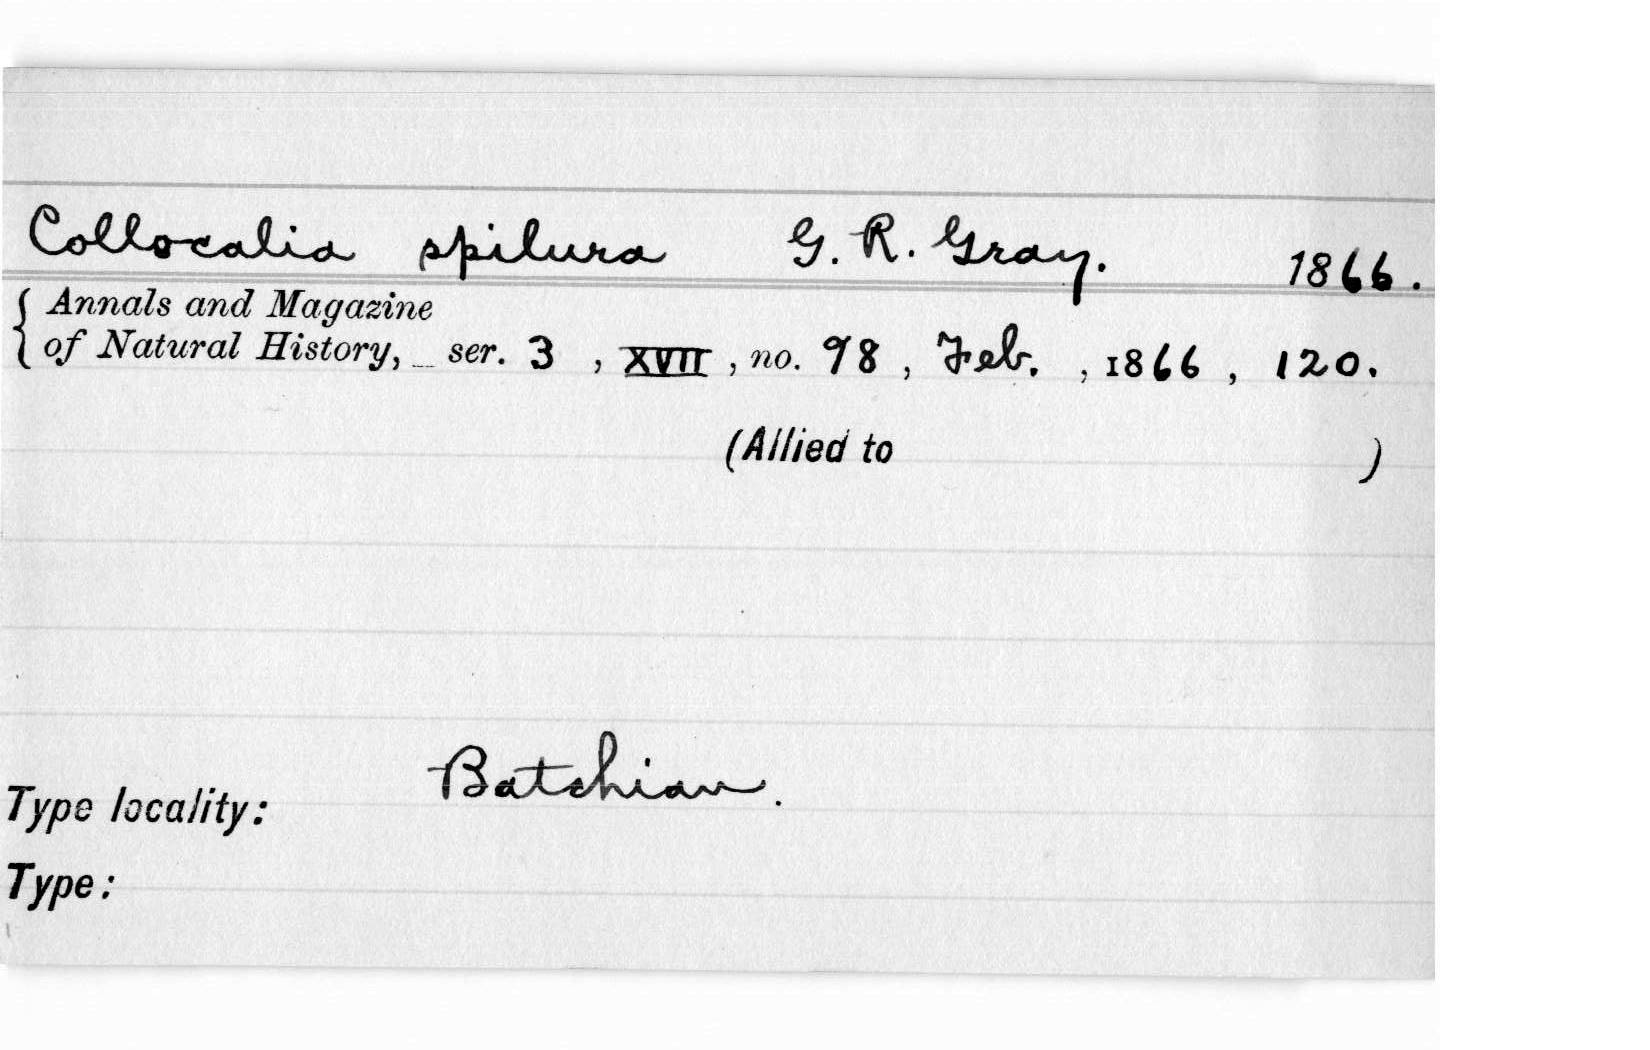 Collocalia spilura G. R. Gray. 1866.
{ Annals and Magazine
of Natural History, ser. 3 , XVII , no. 98 , Feb. , 1866 , 120.
(Allied to )
Type locality: Batchian.
Type: